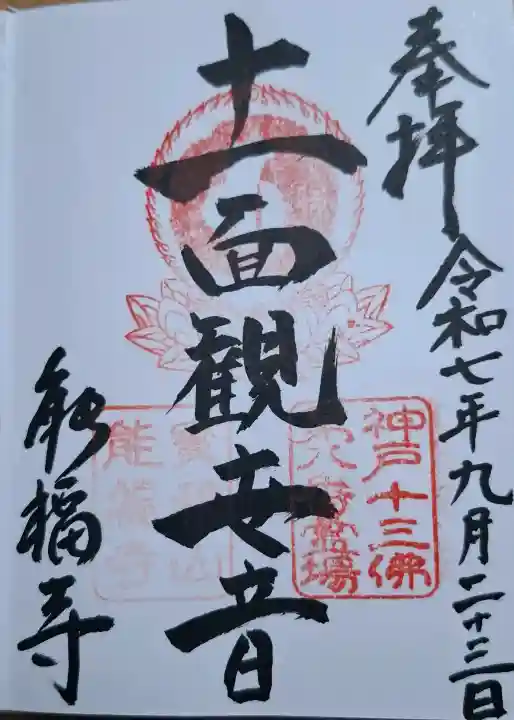 奉拝 令和七年九月二十三日
十一面観世音
能福寺
神戸十三佛
第六番霊場
能福寺